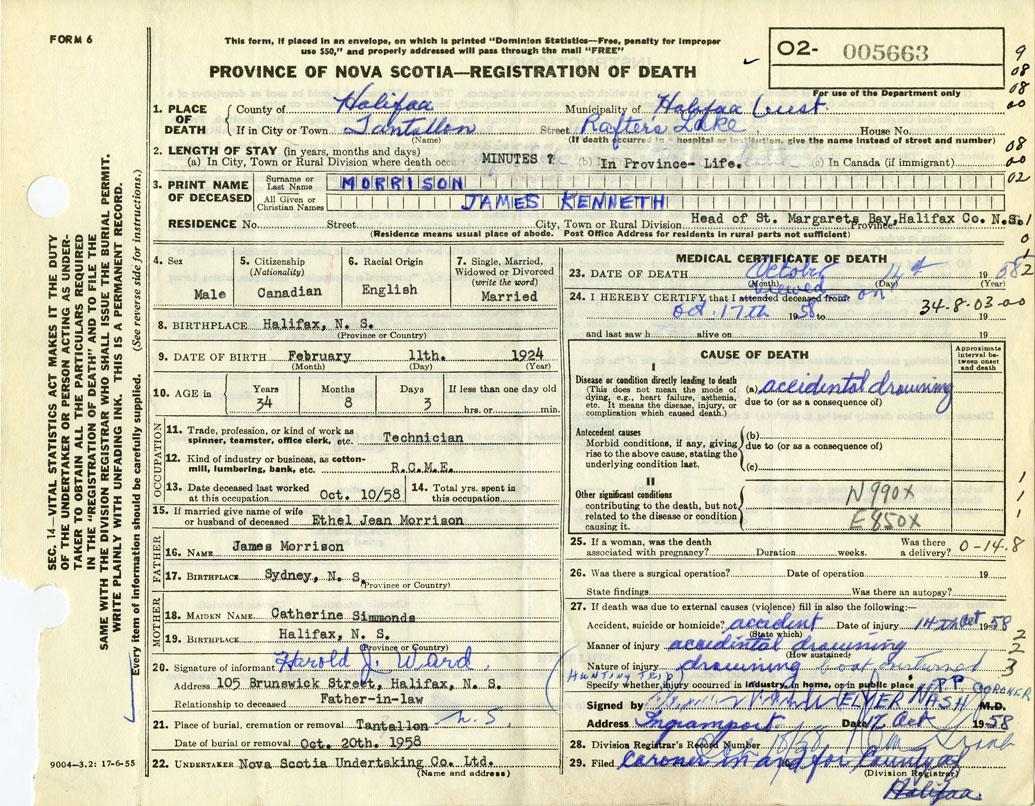 FORM 6
This form, if placed in an envelope, on which is printed "Dominion Statistics—Free, penalty for improper
use $50," and properly addressed will pass through the mail "FREE"
02- 005663
PROVINCE OF NOVA SCOTIA—REGISTRATION OF DEATH
For use of the Department only
9
08
08
00
08
00
02
1. PLACE OF DEATH
County of Halifax Municipality of Halifax West.
If in City or Town Tantallon Street Rafter's Lake House No.
(Name) (If death occurred in hospital or institution, give the name instead of street and number)
2. LENGTH OF STAY (in years, months and days)
(a) In City, Town or Rural Division where death occ MINUTES ? (b) In Province- Life. (c) In Canada (if immigrant)
3. PRINT NAME OF DECEASED
Surname or Last Name MORRISON
All Given or Christian Names JAMES KENNETH
RESIDENCE No. Street City, Town or Rural Division Head of St. Margarets Bay, Halifax Co. N.S. Province
(Residence means usual place of abode. Post Office Address for residents in rural parts not sufficient)
SEC. 14—VITAL STATISTICS ACT MAKES IT THE DUTY
OF THE UNDERTAKER OR PERSON ACTING AS UNDER-
TAKER TO OBTAIN ALL THE PARTICULARS REQUIRED
IN THE "REGISTRATION OF DEATH" AND TO FILE THE
SAME WITH THE DIVISION REGISTRAR WHO SHALL ISSUE THE BURIAL PERMIT.
WRITE PLAINLY WITH UNFADING INK. THIS IS A PERMANENT RECORD.
Every item of information should be carefully supplied. (See reverse side for instructions.)
4. Sex
Male
5. Citizenship
(Nationality)
Canadian
6. Racial Origin
English
7. Single, Married,
Widowed or Divorced
(write the word)
Married
8. BIRTHPLACE Halifax, N. S.
(Province or Country)
9. DATE OF BIRTH February 11th. 1924
(Month) (Day) (Year)
10. AGE in
Years Months Days If less than one day old
34 8 3 hrs. or min.
OCCUPATION
11. Trade, profession, or kind of work as
spinner, teamster, office clerk, etc. Technician
12. Kind of industry or business, as cotton-
mill, lumbering, bank, etc. R.C.M.E.
13. Date deceased last worked
at this occupation Oct. 10/58
14. Total yrs. spent in
this occupation
15. If married give name of wife
or husband of deceased Ethel Jean Morrison
FATHER
16. NAME James Morrison
17. BIRTHPLACE Sydney, N. S.
(Province or Country)
MOTHER
18. MAIDEN NAME Catherine Simmonds
19. BIRTHPLACE Halifax, N. S.
(Province or Country)
20. Signature of informant Harold J. Ward.
Address 105 Brunswick Street, Halifax, N. S.
Relationship to deceased Father-in-law
21. Place of burial, cremation or removal Tantallon N.S.
Date of burial or removal Oct. 20th. 1958
22. UNDERTAKER Nova Scotia Undertaking Co. Ltd.
(Name and address)
9004—3.2: 17-6-55
MEDICAL CERTIFICATE OF DEATH
23. DATE OF DEATH October 14th 1958
(Month) (Day) (Year)
24. I HEREBY CERTIFY that I attended deceased from viewed on
Oct. 17th 1958 to 19
34-8-03-00
and last saw h alive on 19
CAUSE OF DEATH
Approximate interval between onset and death
I
Disease or condition directly leading to death
(This does not mean the mode of
dying, e.g., heart failure, asthenia,
etc. It means the disease, injury, or
complication which caused death.)
(a) accidental drowning
due to (or as a consequence of)
Antecedent causes
Morbid conditions, if any, giving
rise to the above cause, stating the
underlying condition last.
(b)
due to (or as a consequence of)
(c)
II
Other significant conditions
contributing to the death, but not
related to the disease or condition
causing it.
N990X
E850X
1
1
1
25. If a woman, was the death
associated with pregnancy? Duration weeks. Was there
a delivery? 0-14-8
26. Was there a surgical operation? Date of operation 19
State findings Was there an autopsy?
27. If death was due to external causes (violence) fill in also the following:—
Accident, suicide or homicide? accident Date of injury 14th Oct 1958
(State which)
Manner of injury accidental drowning
(How sustained)
Nature of injury drowning boat overturned
(HUNTING TRIP)
2
2
3
Specify whether injury occurred in industry, in home, or in public place P.P.
Signed by ELMER NASH CORONER M.D.
Address Ingramport Date 17 Oct 1958
28. Division Registrar's Record Number
29. Filed coroner in and for County of
(Division Registrar)
Halifax.